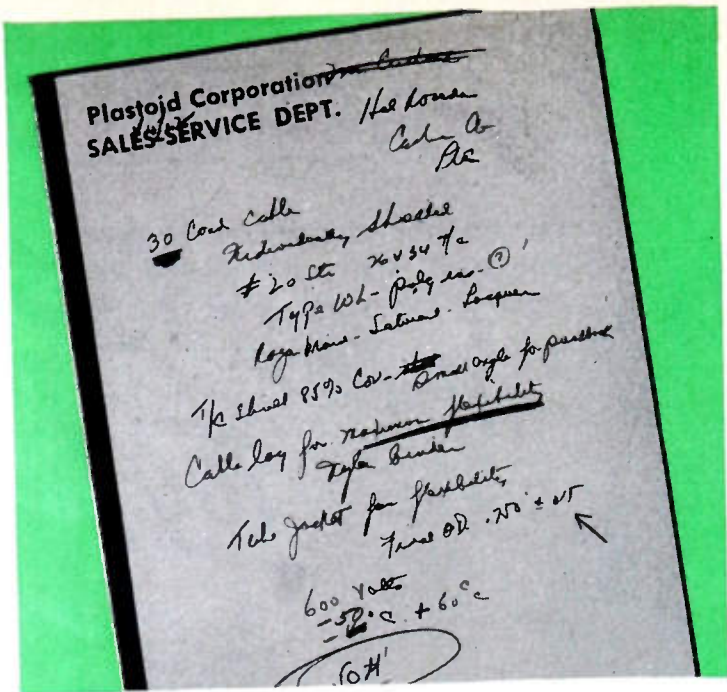 Plastoid Corporation
SALES-SERVICE DEPT.
30 Cond Cable
Individually Shielded
# 20 Str 26 x 34 T/c
Type WL - poly ins - (?)
Rayon Braid - Saturant - Lacquer
T/c Shield 85% Cov - Small angle for pushback
Cable lay for maximum flexibility
Nylon Binder
Tube Jacket for flexibility
Final OD .750 ±
600 Volts
-50°C + 60°C